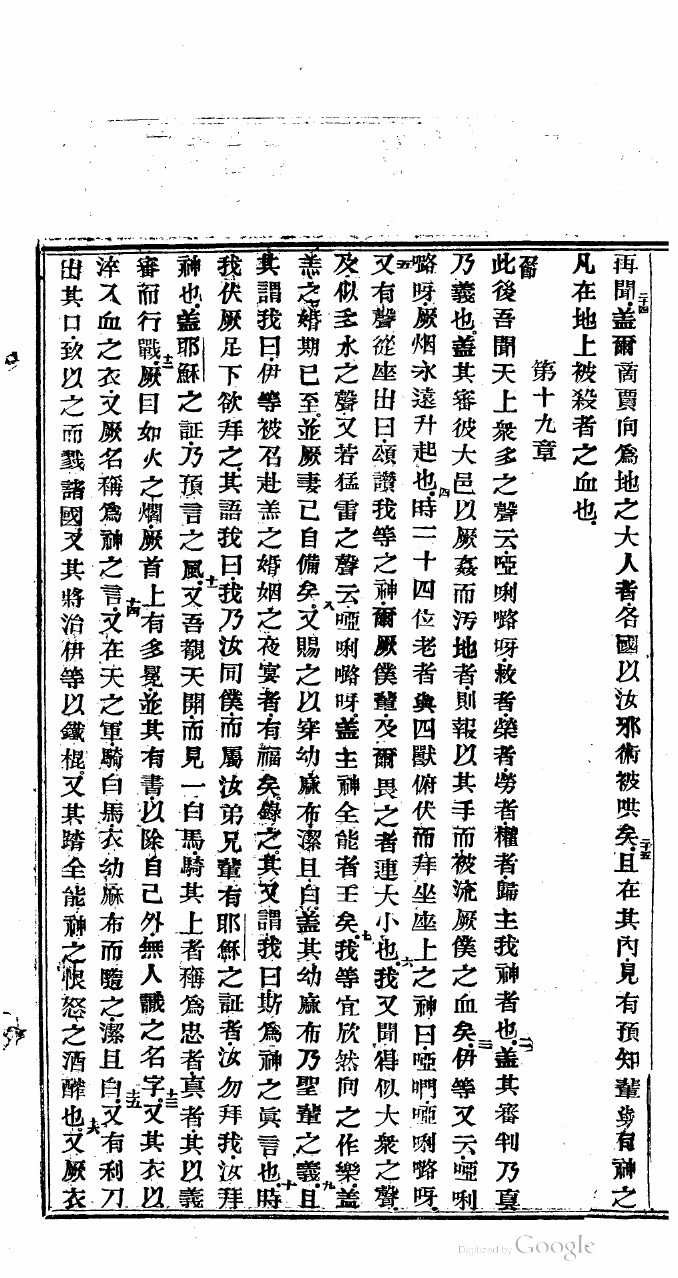 再聞蓋爾商賈向為地之大人者各國以汝邪術被哄矣且在其內見有預知輩與有神之
凡在地上被殺者之血也
第十九章
此後吾聞天上衆多之聲云啞唎嚕呀救者榮者勞者權者歸主我神者也蓋其審判乃真
乃義也蓋其審彼大邑以厥姦而汚地者則報以其手而被流厥僕之血矣伊等又云啞唎
嚕呀厥烟永遠升起也時二十四位老者與四獸俯伏而拜坐座上之神曰啞們啞唎嚕呀
又有聲從座出曰頌讚我等之神爾厥僕輩及爾畏之者連大小也我又聞得似大衆之聲
及似多水之聲又若猛雷之聲云啞唎嚕呀蓋主神全能者王矣我等宜欣然向之作樂蓋
羔之婚期已至並厥妻已自備矣又賜之以穿幼麻布潔且白蓋其幼麻布乃聖輩之義且
其謂我曰伊等被召赴羔之婚姻之夜宴者有福矣錄之其又謂我曰斯為神之眞言也時
我伏厥足下欲拜之其語我曰我乃汝同僕而屬汝弟兄輩有耶穌之証者汝勿拜我汝拜
神也蓋耶穌之証乃預言之風又吾觀天開而見一白馬騎其上者稱為忠者真者其以義
審而行戰厥目如火之爓厥首上有多冕並其有書以除自己外無人識之名字又其衣以
淬入血之衣又厥名稱為神之言又在天之軍騎白馬衣幼麻布而隨之潔且白又有利刀
出其口致以之而戮諸國又其將治伊等以鐵棍又其踏全能神之恨怒之酒醡也又厥衣
Digitized by Google